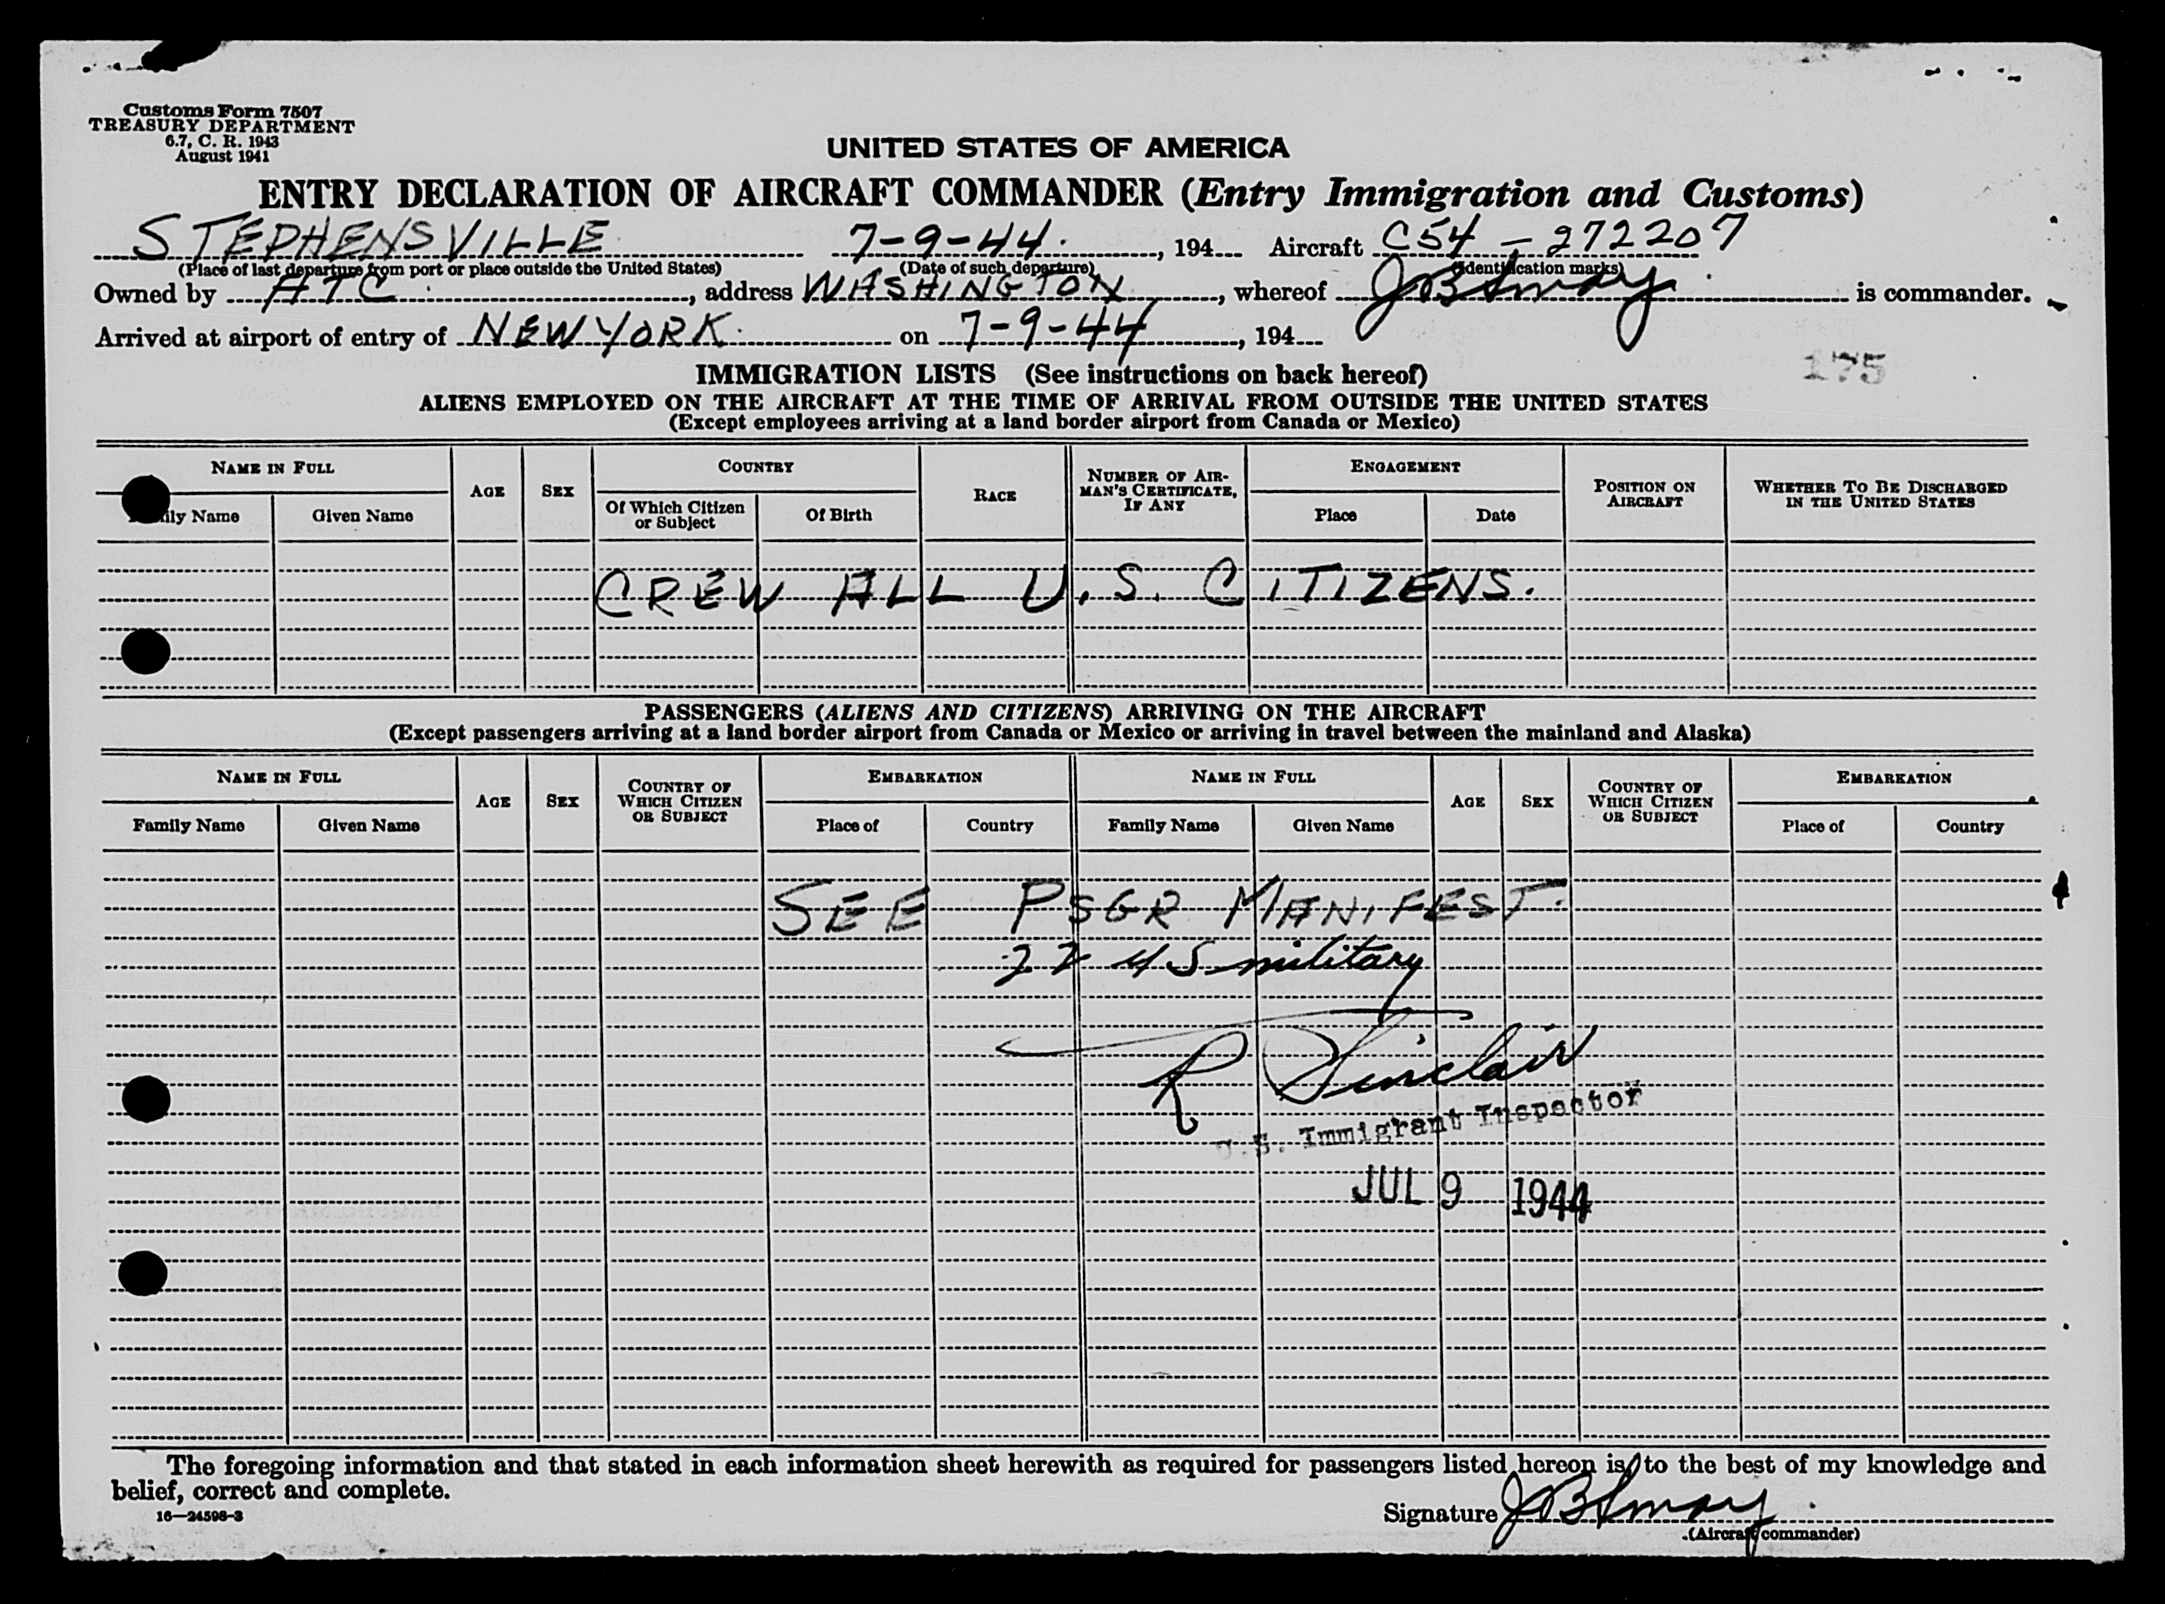 Customs Form 7507
TREASURY DEPARTMENT
6.7, C. R. 1943
August 1941
UNITED STATES OF AMERICA
ENTRY DECLARATION OF AIRCRAFT COMMANDER (Entry Immigration and Customs)
STEPHENSVILLE 7-9-44. , 194 Aircraft C54 - 272207
(Place of last departure from port or place outside the United States) (Date of such departure) (Identification marks)
Owned by ATC , address WASHINGTON , whereof JB Smay is commander.
Arrived at airport of entry of NEW YORK. on 7-9-44 , 194
175
IMMIGRATION LISTS (See instructions on back hereof)
ALIENS EMPLOYED ON THE AIRCRAFT AT THE TIME OF ARRIVAL FROM OUTSIDE THE UNITED STATES
(Except employees arriving at a land border airport from Canada or Mexico)
NAME IN FULL AGE SEX COUNTRY RACE NUMBER OF AIRMAN'S CERTIFICATE, IF ANY ENGAGEMENT POSITION ON AIRCRAFT WHETHER TO BE DISCHARGED IN THE UNITED STATES
Family Name Given Name Of Which Citizen or Subject Of Birth Place Date
CREW ALL U.S. CITIZENS.
PASSENGERS (ALIENS AND CITIZENS) ARRIVING ON THE AIRCRAFT
(Except passengers arriving at a land border airport from Canada or Mexico or arriving in travel between the mainland and Alaska)
NAME IN FULL AGE SEX COUNTRY OF WHICH CITIZEN OR SUBJECT EMBARKATION NAME IN FULL AGE SEX COUNTRY OF WHICH CITIZEN OR SUBJECT EMBARKATION
Family Name Given Name Place of Country Family Name Given Name Place of Country
SEE PSGR MANIFEST.
22 US military
R Sinclair
U.S. Immigrant Inspector
JUL 9 1944
The foregoing information and that stated in each information sheet herewith as required for passengers listed hereon is, to the best of my knowledge and
belief, correct and complete.
16—24598-3
Signature JB Smay
(Aircraft commander)